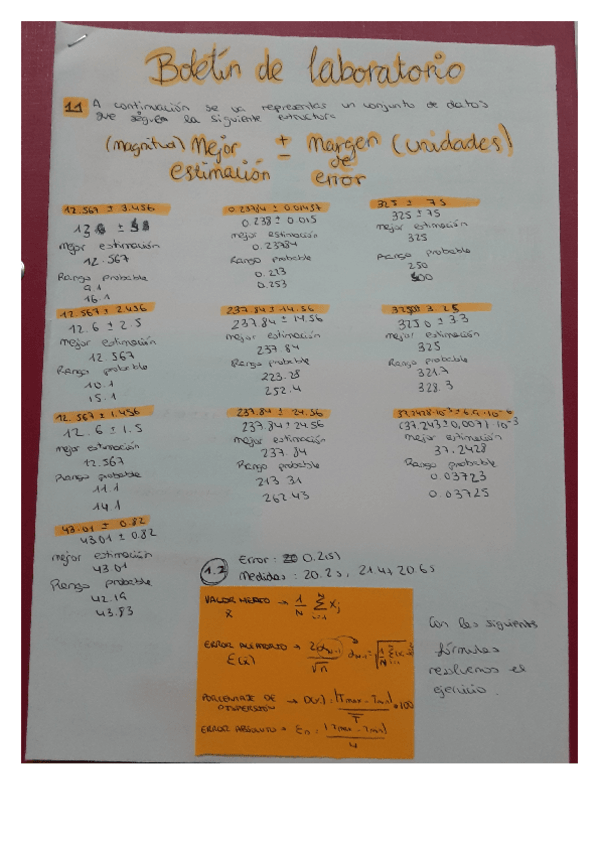 Boletín de laboratorio
1.1 A continuación se va representar un conjunto de datos
que siguen la siguiente estructura
(magnitud) Mejor estimación ± Margen de error (unidades)
12.567 ± 3.456
mejor estimación
12.567
Rango probable
9.1
16.1
12.567 ± 2.456
12.6 ± 2.5
mejor estimación
12.567
Rango probable
10.1
15.1
12.567 ± 1.456
12.6 ± 1.5
mejor estimación
12.567
Rango probable
11.1
14.1
43.01 ± 0.82
43.01 ± 0.82
mejor estimación
43.01
Rango probable
42.19
43.83
0.23784 ± 0.01457
0.238 ± 0.015
mejor estimación
0.23784
Rango probable
0.223
0.253
237.84 ± 14.56
237.84 ± 14.56
mejor estimación
237.84
Rango probable
223.28
252.4
237.84 ± 24.56
237.84 ± 24.56
mejor estimación
237.84
Rango probable
213.31
262.43
325 ± 75
325 ± 75
mejor estimación
325
Rango probable
250
3.25
325.0 ± 3.3
mejor estimación
325
Rango probable
321.7
328.3
37.2428·10⁻³ ± 6.9·10⁻⁶
(37.243 ± 0,007)·10⁻³
mejor estimación
37.2428
Rango probable
0.03723
0.03725
1.2 Error: 0.2(s)
Medidas: 20.2s, 21.4s 20.6s
VALOR MEDIO →
x̄
ERROR ALEATORIO →
E(x̄)
PORCENTAJE DE DISPERSIÓN →
ERROR ABSOLUTO →
Con las siguientes
fórmulas
resolvemos el
ejercicio.